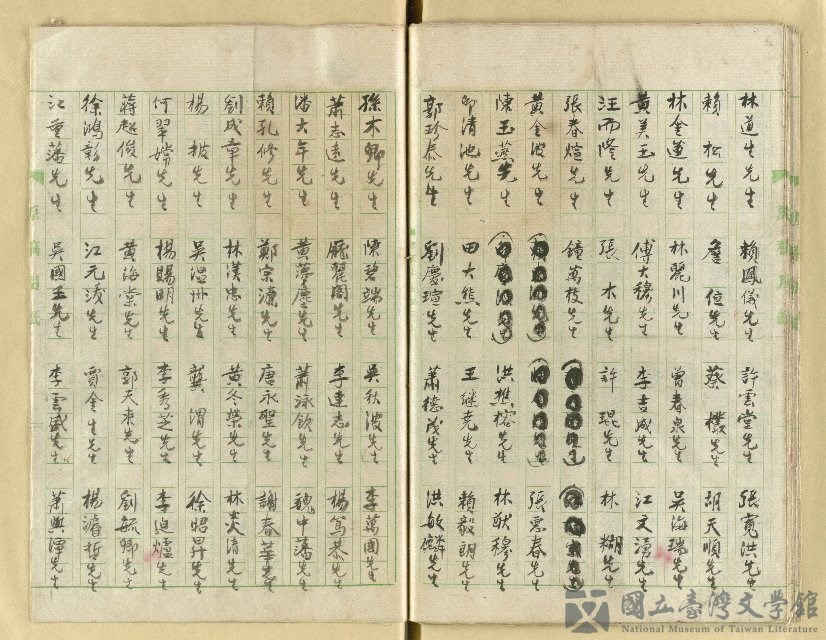 林道生先生 賴鳳儀先生 許雲堂先生 張寬洪先生
賴松先生 詹位先生 蔡樸先生 胡天順先生
林金蓮先生 林麗川先生 曾春泉先生 吳海瑞先生
黃美玉先生 傅大穆先生 李吉成先生 江文湧先生
汪而隆先生 張木先生 許琨先生 林糊先生
張春煊先生 鐘萬枝先生
黃金波先生 張雲春先生
陳玉燕先生 洪樵榕先生 林猷穆先生
邱清池先生 田大熊先生 王継尭先生 賴毅朗先生
郭珍泰先生 劉慶璮先生 蕭德茂先生 洪敏麟先生
孫木卿先生 陳碧端先生 吳秋波先生 李萬固先生
蕭志遠先生 先生 李達志先生 楊篤恭先生
潘大年先生 黃夢塵先生 蕭泳欽先生 魏中藩先生
賴孔修先生 鄭宗濂先生 唐永聖先生 謝春華先生
劉成章先生 林漢忠先生 黃冬榮先生 林炎清先生
楊先生 吳溫州先生 龔渭先生 徐昭昇先生
何翠嫦先生 楊賜明先生 李秀芝先生 李迫爐先生
蔣超俊先生 黃海棠先生 郭天來先生 劉毓卿先生
徐鴻彰先生 江元浚先生 賈金生先生 楊濬哲先生
江重藩先生 吳國玉先生 李雲盛先生 蕭興潭先生
國立臺灣文學館
National Museum of Taiwan Literature